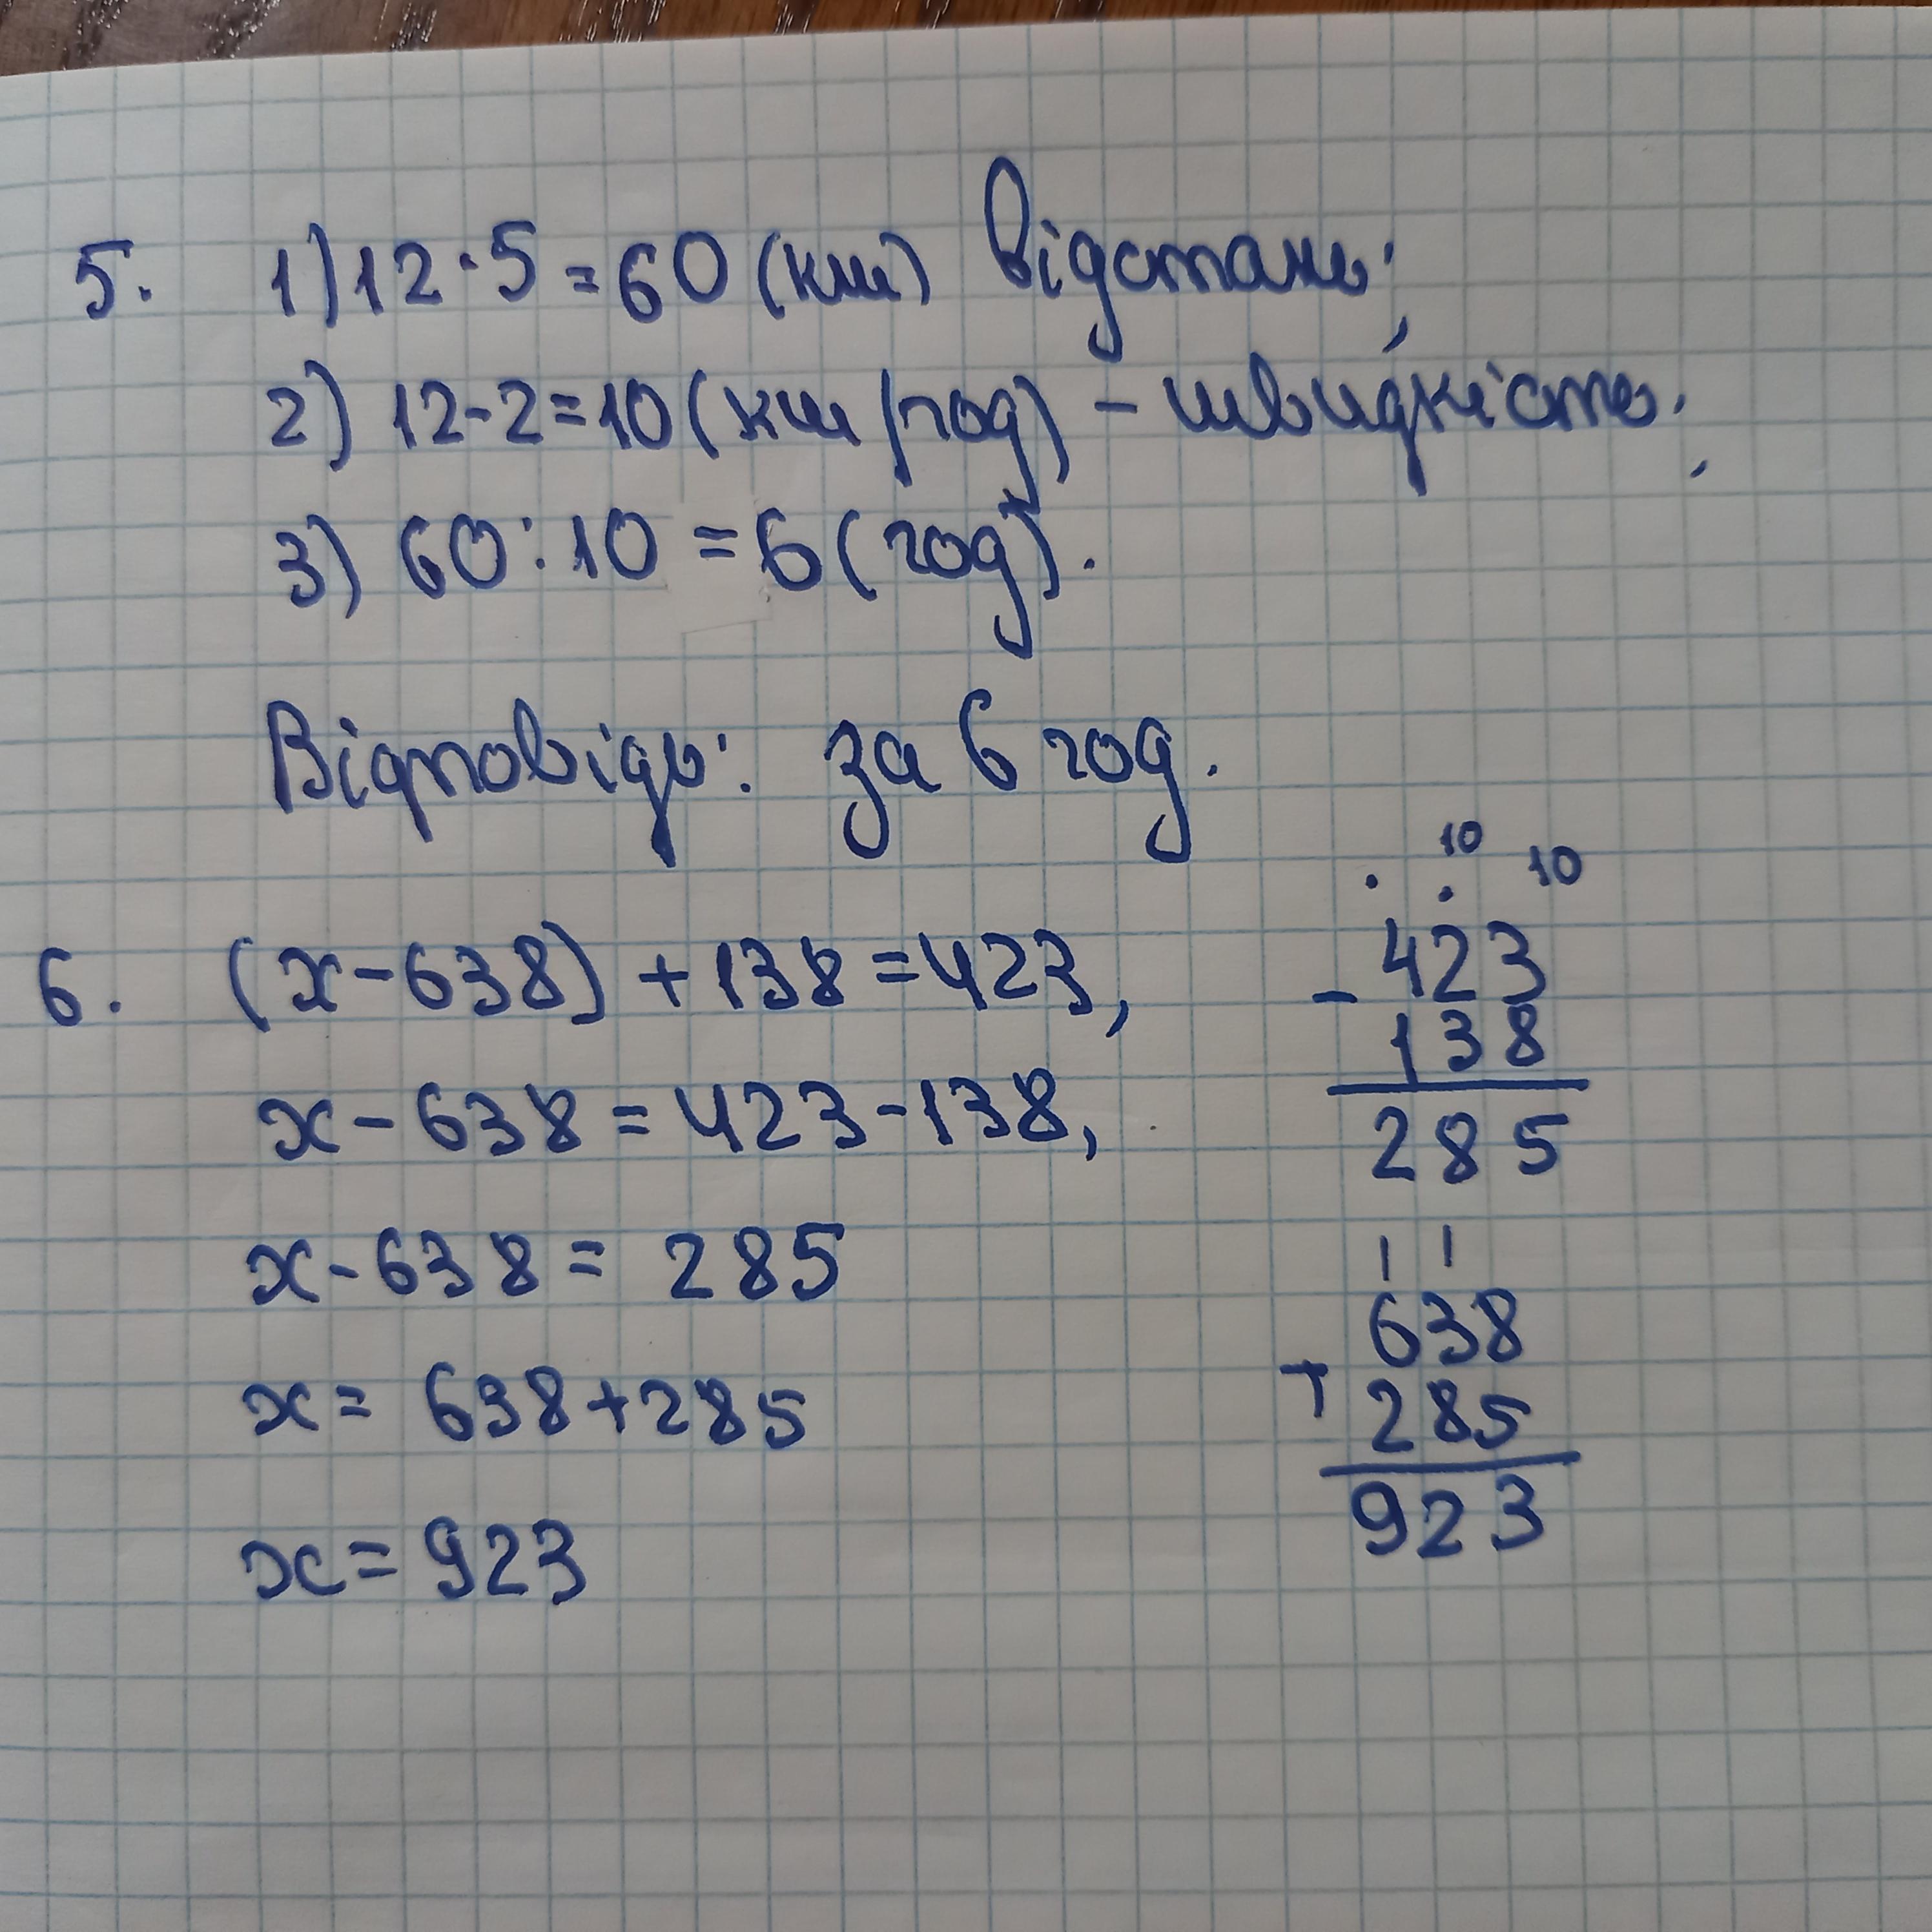 5. 1) 12·5=60 (км) відстань;
2) 12-2=10 (км/год) - швидкість;
3) 60:10 =6 (год).
Відповідь: за 6 год.
6. (x-638)+138=423,
x-638=423-138,
x-638= 285
x= 638+285
x=923
. 10
. 10
-423
138
285
1 1
638
+285
923